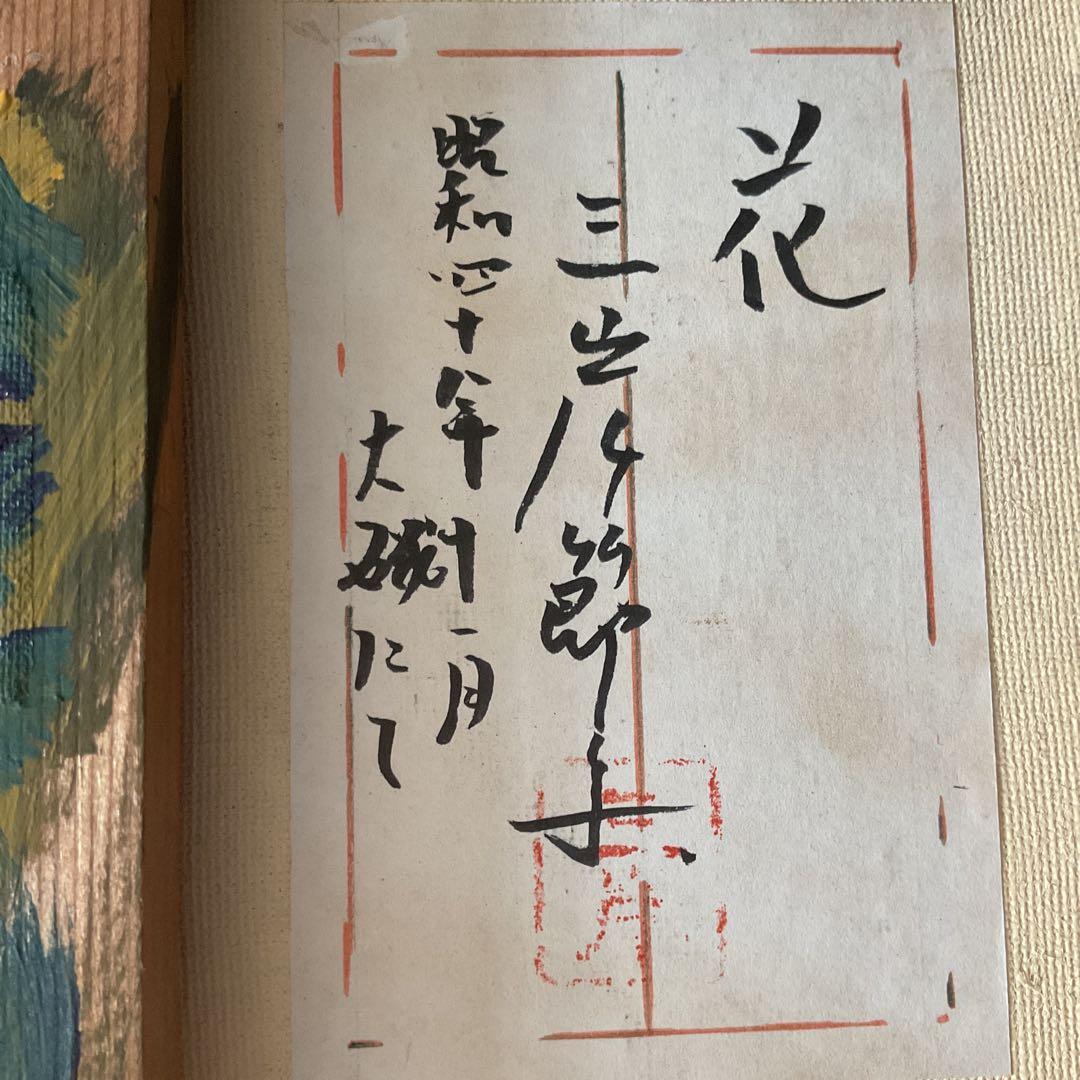 花
三岸節子
昭和四十年十一月
大磯にて